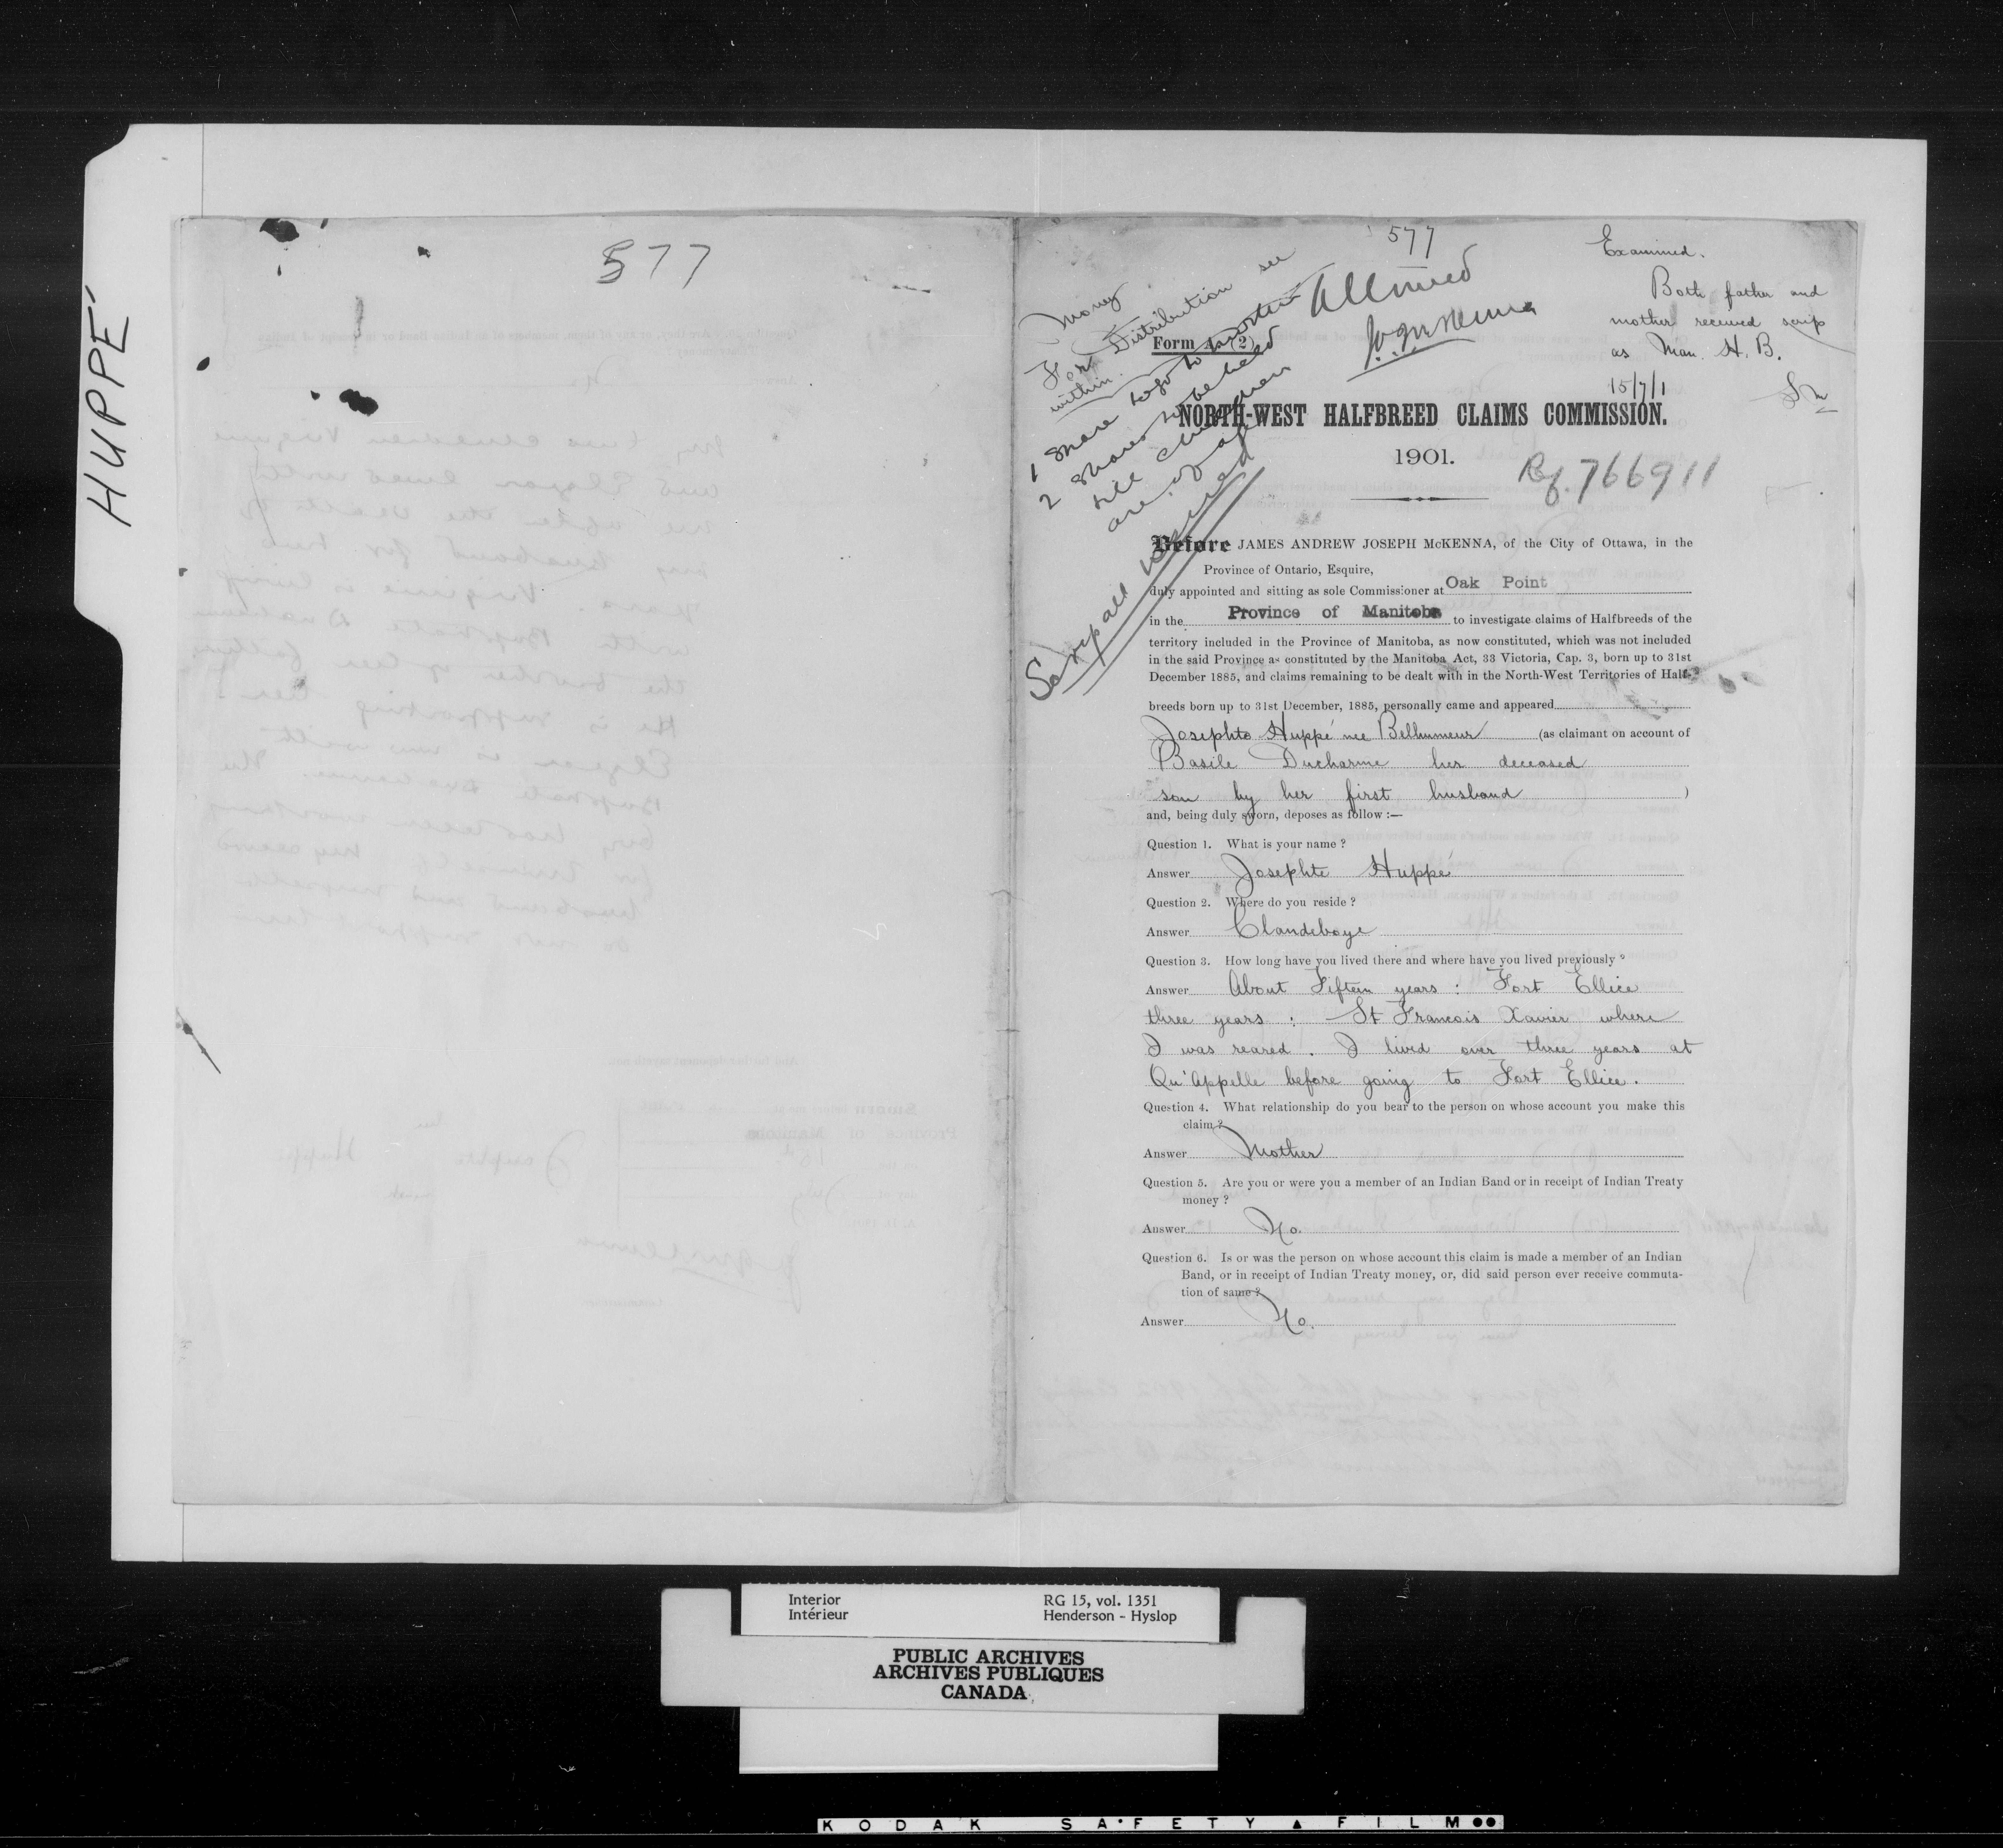 HUPPÉ
577
577
Examined.
Both father and
mother received scrip
as Man. H. B.
15/7/1
Allowed
Money
For Distribution see
within.
1 share to go to mother
2 shares to be held
till children
are of age
Form A. (2)
NORTH-WEST HALFBREED CLAIMS COMMISSION.
1901.
Rf. 766911
Before JAMES ANDREW JOSEPH McKENNA, of the City of Ottawa, in the
Province of Ontario, Esquire,
duly appointed and sitting as sole Commissioner at Oak Point
in the Province of Manitoba to investigate claims of Halfbreeds of the
territory included in the Province of Manitoba, as now constituted, which was not included
in the said Province as constituted by the Manitoba Act, 33 Victoria, Cap. 3, born up to 31st
December 1885, and claims remaining to be dealt with in the North-West Territories of Half-
breeds born up to 31st December, 1885, personally came and appeared
Josephte Huppé nee Belhumeur (as claimant on account of
Basile Ducharme her deceased
son by her first husband )
and, being duly sworn, deposes as follow :—
Question 1. What is your name ?
Answer Josephte Huppé
Question 2. Where do you reside ?
Answer Clandeboye
Question 3. How long have you lived there and where have you lived previously ?
Answer About Fifteen years : Fort Ellice
three years : St Francois Xavier where
I was reared . I lived over three years at
Qu'Appelle before going to Fort Ellice .
Question 4. What relationship do you bear to the person on whose account you make this
claim ?
Answer Mother
Question 5. Are you or were you a member of an Indian Band or in receipt of Indian Treaty
money ?
Answer No.
Question 6. Is or was the person on whose account this claim is made a member of an Indian
Band, or in receipt of Indian Treaty money, or, did said person ever receive commuta-
tion of same ?
Answer No.
Interior RG 15, vol. 1351
Intérieur Henderson - Hyslop
PUBLIC ARCHIVES
ARCHIVES PUBLIQUES
CANADA
KODAK SAFETY FILM